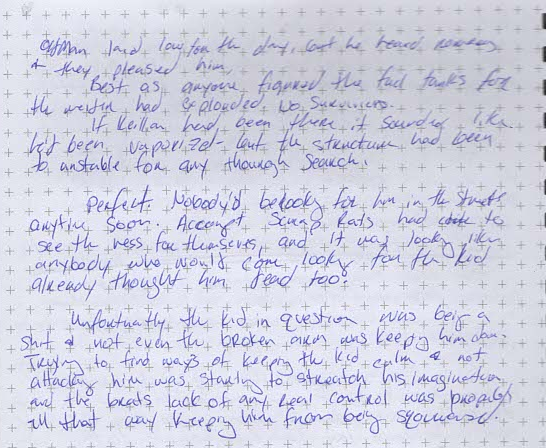 laid low for the day, but he heard rumors
& they pleased him.
Best as anyone figured the fuel tanks for
the had exploded. No survivors.
If Keillan had been there it sounded like
he'd been vaporized - but the structure had been
to unstable for any thourgh search.
Perfect. Nobody'd be looky for him in the streets
anytime soon. Accoupt Scrap Rats had to
see the mess for themselves, and it was looky like
anybody who would come looky for the kid
already thought him dead too.
Unfortunatly the kid in question was beig a
shit & not even the broken arm was keepig him down.
Tryig to find ways of keepig the kid calm & not
attackig him was startig to streatch his imagination
and the brats lack of any real control was probably
all that any keepig him from beig